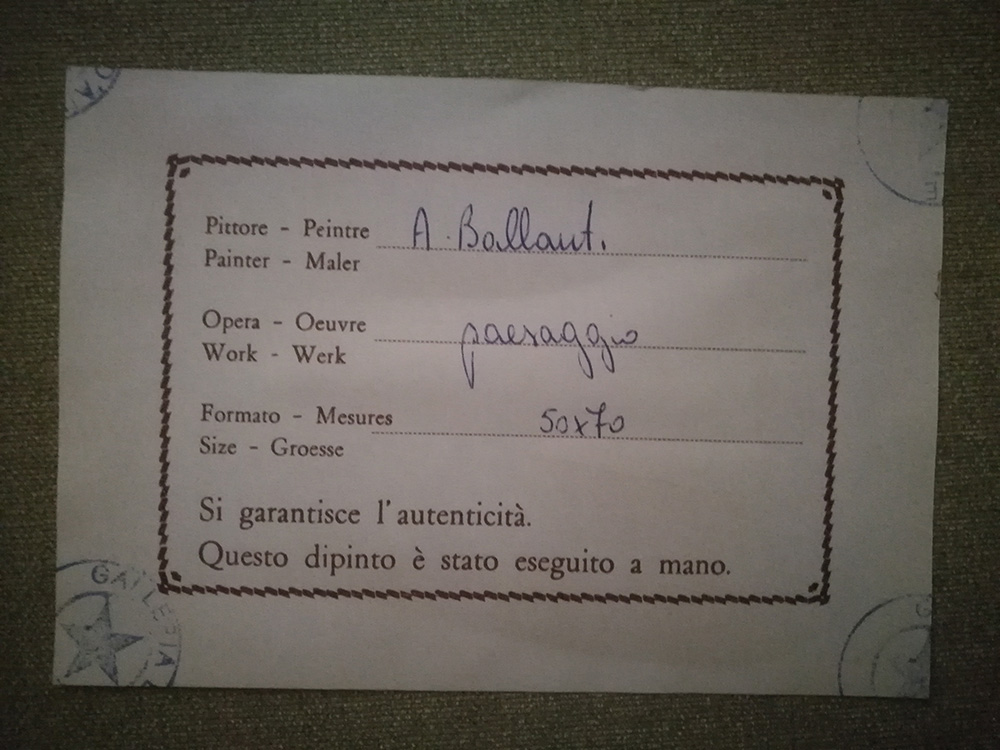 Pittore - Peintre A. Ballaut.
Painter - Maler
Opera - Oeuvre paesaggio
Work - Werk
Formato - Mesures 50x70
Size - Groesse
Si garantisce l'autenticità.
Questo dipinto è stato eseguito a mano.
GALLERIA